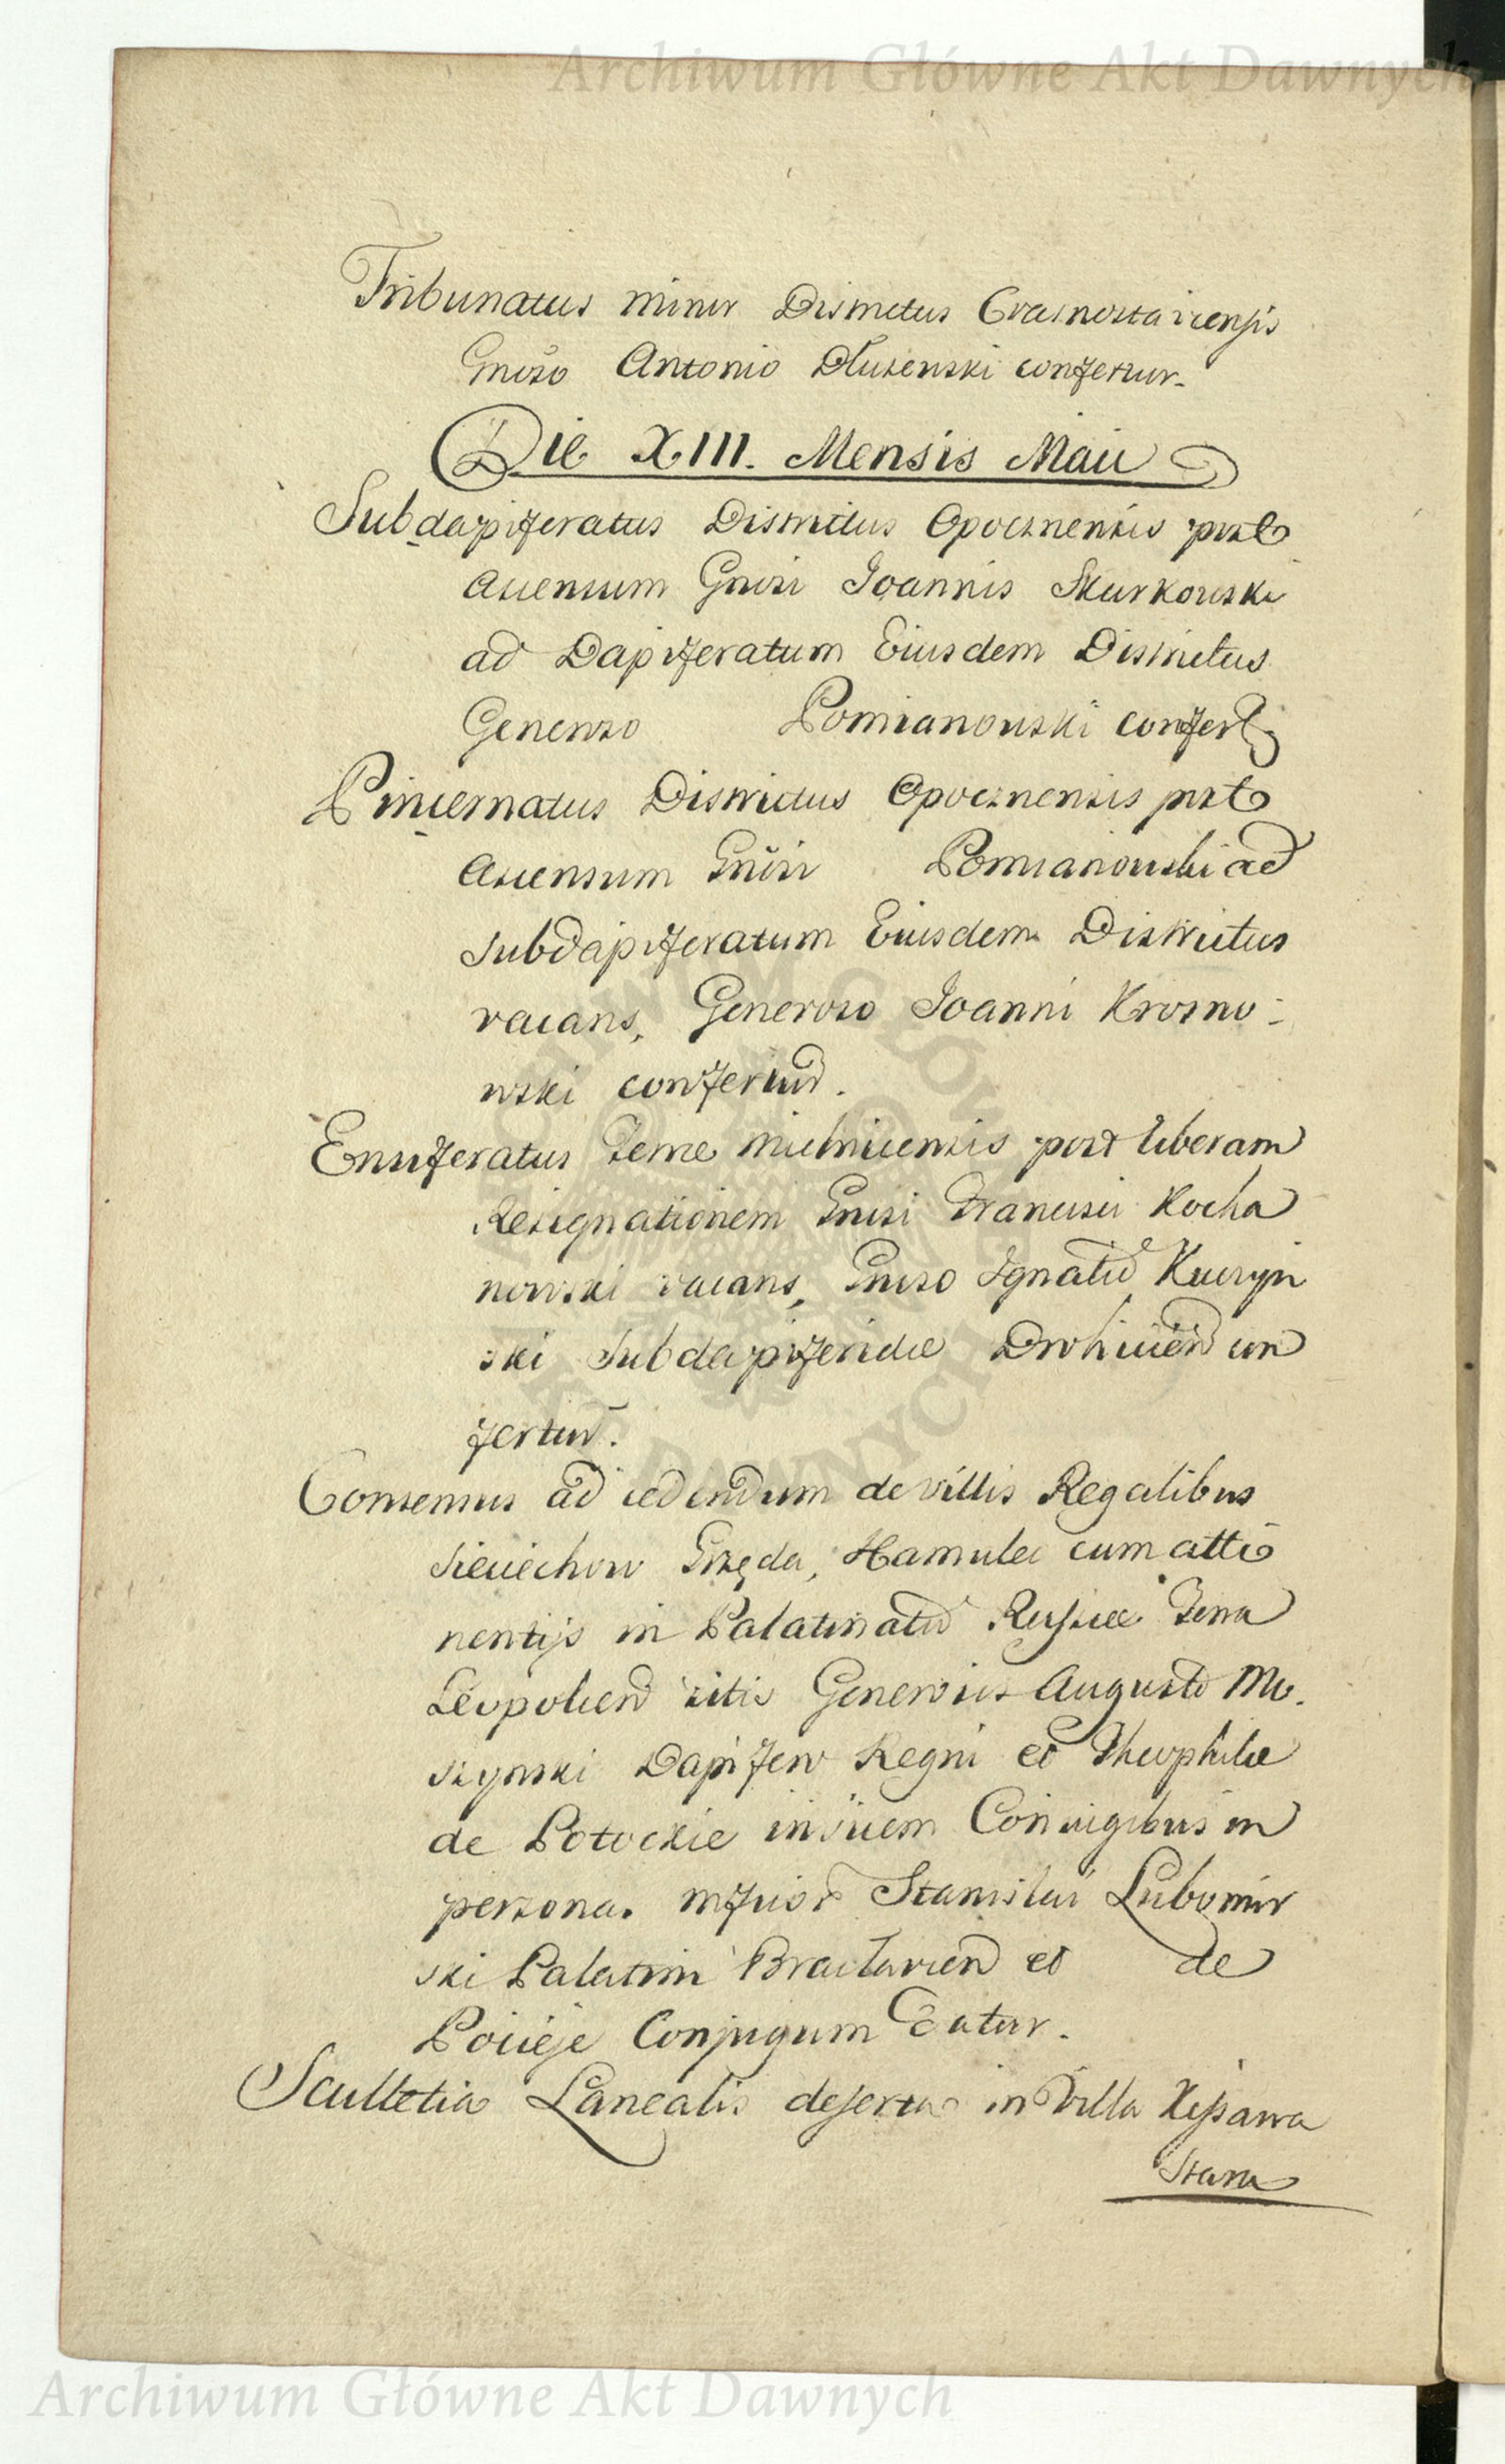 Archiwum Główne Akt Dawnych
Tribunatus minor Districtus Crasnostaviensis
Gnoso Antonio Dłuzenski confertur.
Die XIII. Mensis Maii
Subdapiferatus Districtus Opocznensis post
Ascensum Gnosi Joannis Skurkowski
ad Dapiferatum Eiusdem Districtus
Generoso Pomianowski confert
Pincernatus Districtus Opocznensis post
Ascensum Gnosi Pomianowski ad
Subdapiferatum Eiusdem Districtus
vacans, Generoso Joanni Krosno-
wski confertur.
Ensiferatus Terrae Mielnicensis post liberam
Resignationem Gnosi Francisci Kocha
nowski vacans, Gnoso Ignatio Kuczyn
ski Subdapiferidae Drohicien con
fertur.
Consensus ad cedendum de villis Regalibus
Sieciechow Grzęda, Hamulec cum atti
nentijs in Palatinatu Russiae Terra
Leopolien sitis Generosis Augusto Mo.
szynski Dapifero Regni et Theophilae
de Potockie invicem Conjugibus in
persona. Mfficor Stanislai Lubomir
ski Palatini Braclavien et de
Pocieje Conjugum Datur.
Scultetia Lanealis deserta in Villa
Stara
Archiwum Główne Akt Dawnych